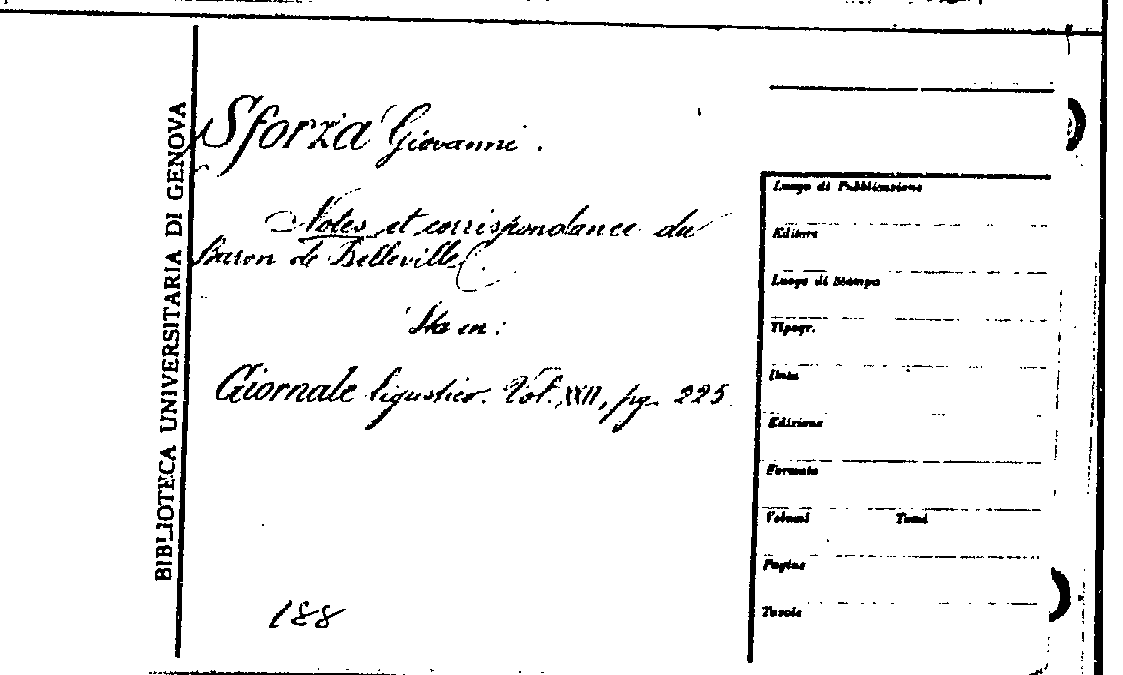 BIBLIOTECA UNIVERSITARIA DI GENOVA
Sforza Giovanni.
Notes et correspondance du
Baron de Belleville.
Sta in:
Giornale ligustico. Vol. XXII, pg. 225
188
Luogo di Pubblicazione
Editore
Luogo di Stampa
Tipogr.
Data
Edizione
Formato
Volumi Tomi
Pagine
Tavole